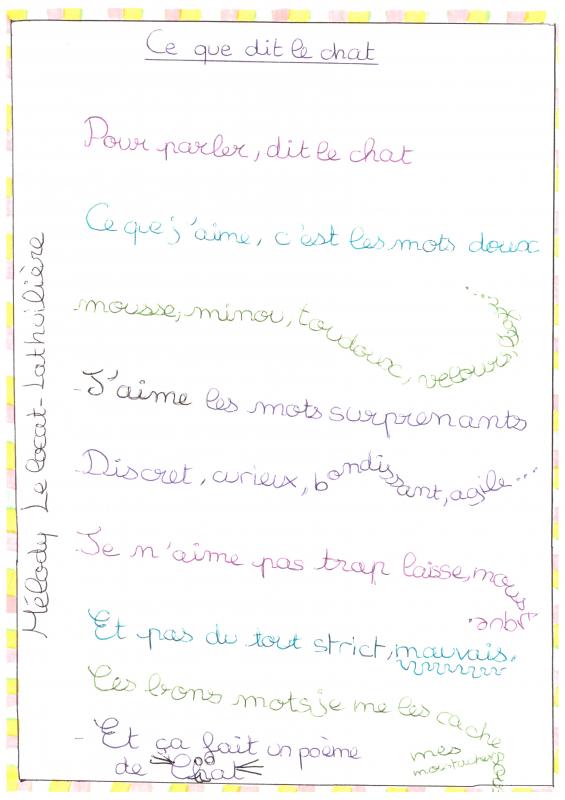 Ce que dit le chat
Pour parler, dit le chat
Ce que j'aime, c'est les mots doux
mousse, minou, toudoux, velours,
- J'aime les mots surprenants
Discret, curieux, bondissant, agile...
Je n'aime pas trop laisse, moustique.
Et pas du tout strict, mauvais.
Les bons mots, je me les cache
mes
moustaches
- Et ça fait un poème
de Chat
Mélody Le Locat-Lathuilière